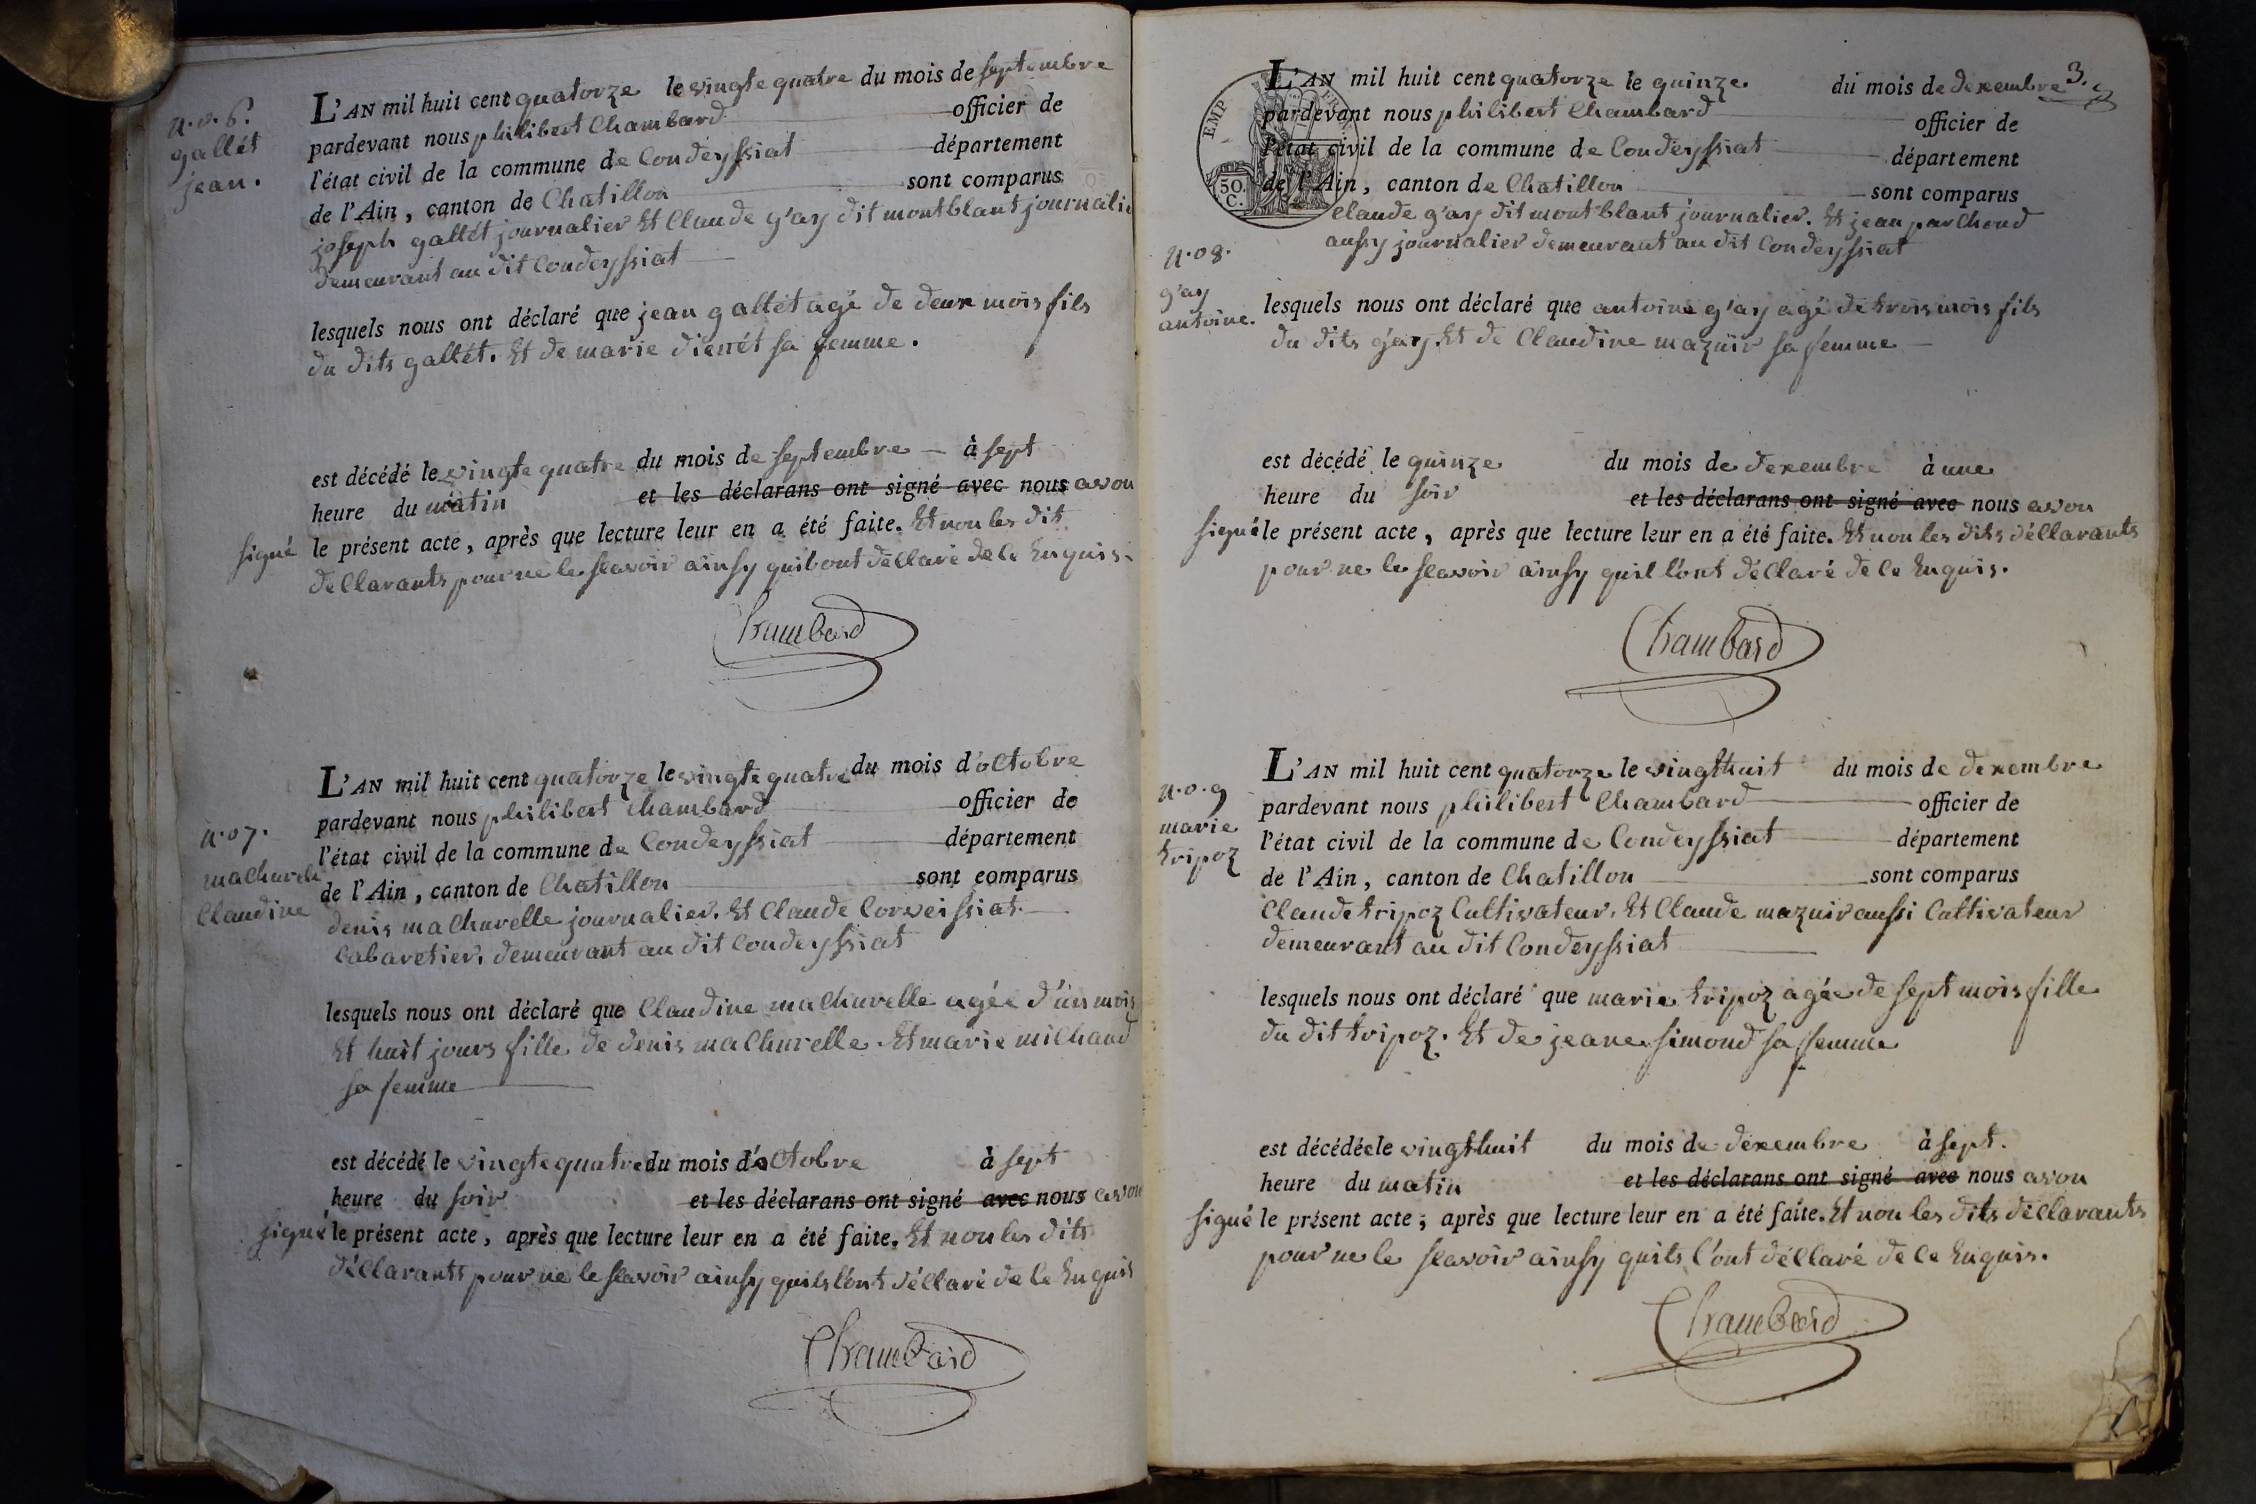 n.o. 6.
gallét
jean.
L'AN mil huit cent quatorze le vingte quatre du mois de septembre
pardevant nous philibert Chambard officier de
l'état civil de la commune de Condeyssiat département
de l'Ain, canton de Chatillon sont comparus
joseph gallét journalier Et Claude g'ay dit montblant journalie
demeurant au dit Condeyssiat
lesquels nous ont déclaré que jean gallét agé de deux mois fils
du dits gallét. Et de marie dienét sa femme.
est décédé le vingte quatre du mois de septembre à sept
heure du matin et les déclarans ont signé avec nous avon
signé le présent acte, après que lecture leur en a été faite. Et non les dit
déCllarants pour ne le scavoir ainsy quils ont déCllaré de Ce Enquis.
Chambard
n.o 7.
maChurelle
Claudine
L'AN mil huit cent quatorze le vingte quatre du mois d'oCtobre
pardevant nous philibert Chambard officier de
l'état civil de la commune de Condeyssiat département
de l'Ain, canton de Chatillon sont comparus
denis maChurelle journalier. Et Claude Corveissiat
Cabaretier. demeurant au dit Condeyssiat
lesquels nous ont déclaré que Claudine maChurelle agée d'un mois
Et huit jours fille de denis maChurelle. Et marie miChaud
sa femme
est décédé le vingte quatre du mois d'oCtobre à sept
heure du soir et les déclarans ont signé avec nous avon
signé le présent acte, après que lecture leur en a été faite. Et non les dits
déCllarants pour ne le scavoir ainsy quils l'ont déCllaré de Ce Enquis
Chambard
3.
EMP FR
50.
C.
L'AN mil huit cent quatorze le quinze du mois de dexembre
pardevant nous philibert Chambard officier de
l'état civil de la commune de Condeyssiat département
de l'Ain, canton de Chatillon sont comparus
Claude g'ay dit montblant journalier. Et jean parChoud
aussy journalier demeurant au dit Condeyssiat
n.o 8.
g'ay
antoine.
lesquels nous ont déclaré que antoine g'ay agé de trois mois fils
du dits g'ay. Et de Claudine mazuir sa femme
est décédé le quinze du mois de dexembre à une
heure du soir et les déclarans ont signé avec nous avon
signé le présent acte, après que lecture leur en a été faite. Et non les dits déCllarants
pour ne le scavoir ainsy quil l'ont déCllaré de Ce Enquis.
Chambard
n.o. 9
marie
tripoz
L'AN mil huit cent quatorze le vingthuit du mois de dexembre
pardevant nous philibert Chambard officier de
l'état civil de la commune de Condeyssiat département
de l'Ain, canton de Chatillon sont comparus
Claude tripoz Cultivateur. Et Claude mazuir aussi Cultivateur
demeurant au dit Condeyssiat
lesquels nous ont déclaré que marie tripoz agée de sept mois fille
du dit tripoz. Et de jeane simond sa femme
est décédée le vingthuit du mois de dexembre à sept.
heure du matin et les déclarans ont signé avec nous avon
signé le présent acte, après que lecture leur en a été faite. Et non les dits déCllarants
pour ne le scavoir ainsy quils l'ont déCllaré de Ce Enquis.
Chambard